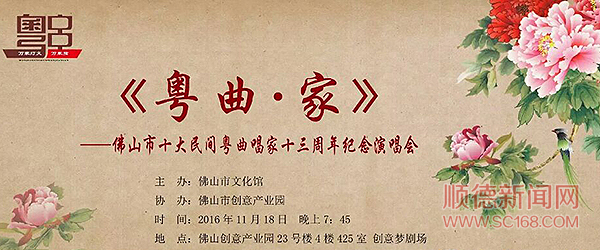 万家灯火 万家福
《粤曲·家》
——佛山市十大民间粤曲唱家十三周年纪念演唱会
主 办:佛山市文化馆
协 办:佛山市创意产业园
时 间:2016年11月18日 晚上7:45
地 点:佛山创意产业园23号楼4楼425室 创意梦剧场
顺德新闻网
WWW.SC168.COM